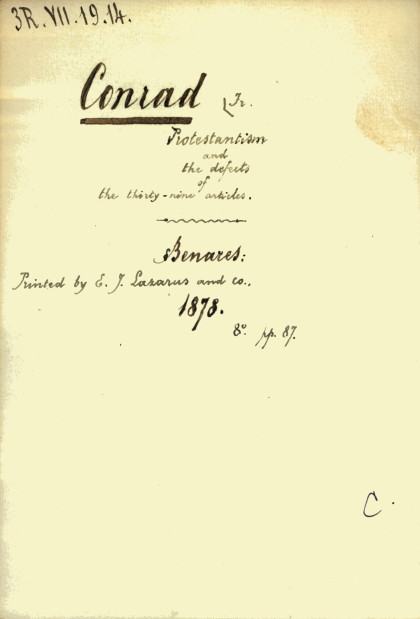 3R.VII.19.14.
Conrad [Jr.
Protestantism
and
the defects
of
the thirty-nine articles.
Benares:
Printed by E. J. Lazarus and co.,
1878.
8º. pp. 87.
C.